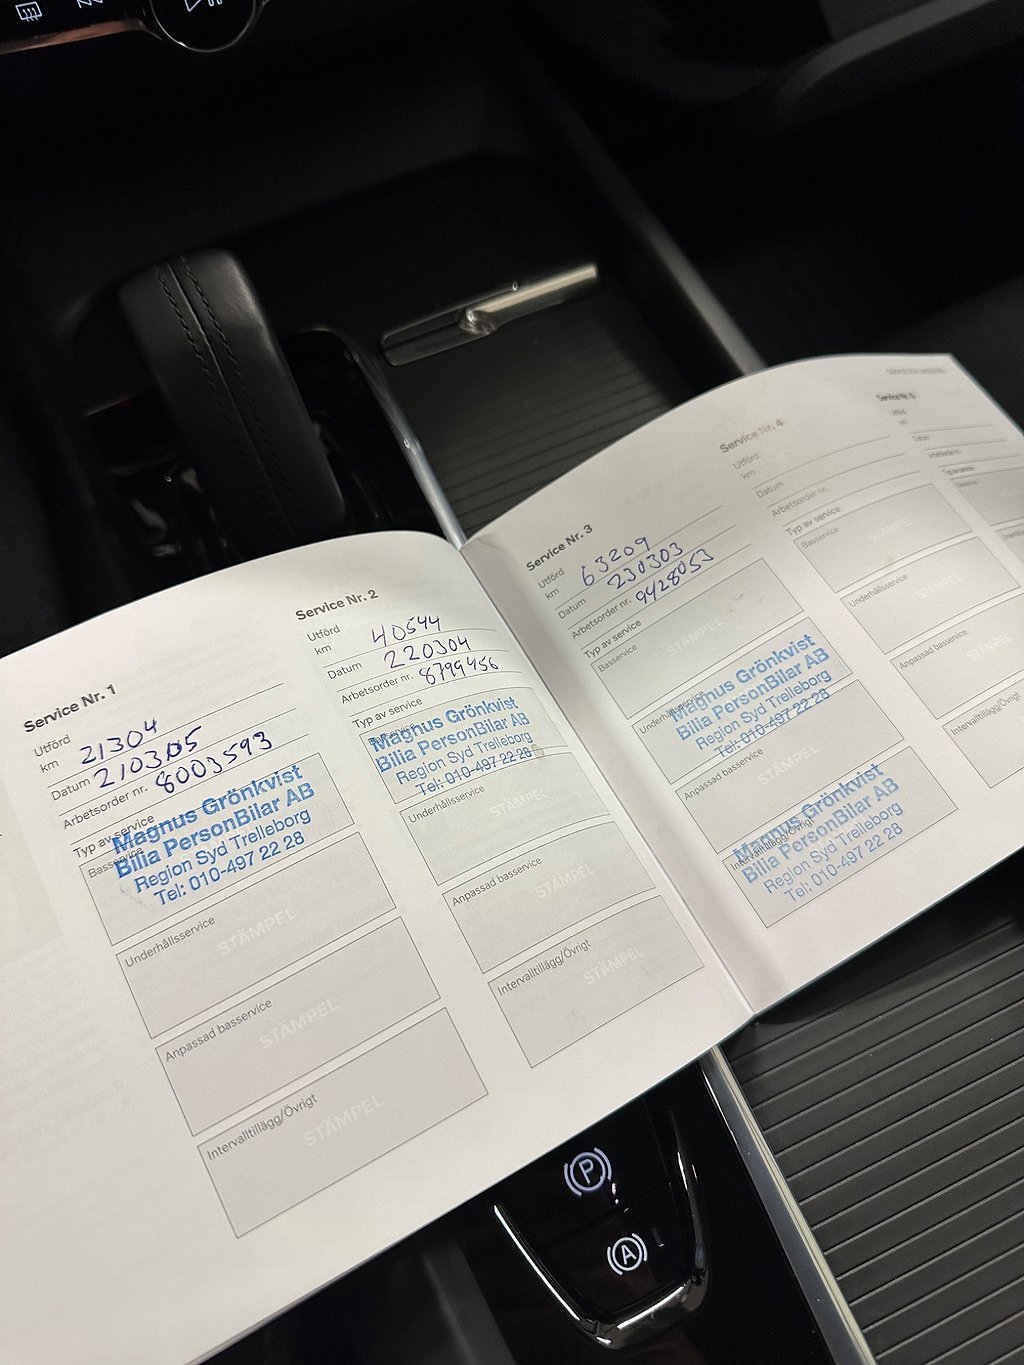 Service Nr. 1
Utförd
km 21304
Datum 210305
Arbetsorder nr. 8003593
Typ av service
Basservice
Magnus Grönkvist
Bilia PersonBilar AB
Region Syd Trelleborg
Tel: 010-497 22 28
Underhållsservice
STÄMPEL
Anpassad basservice
STÄMPEL
Intervalltillägg/Övrigt
STÄMPEL
Service Nr. 2
Utförd
km 40544
Datum 220304
Arbetsorder nr. 8799456
Typ av service
Magnus Grönkvist
Bilia PersonBilar AB
Region Syd Trelleborg
Tel: 010-497 22 28
Underhållsservice
STÄMPEL
Anpassad basservice
STÄMPEL
Intervalltillägg/Övrigt
STÄMPEL
Service Nr. 3
Utförd
km 63209
Datum 230303
Arbetsorder nr. 9428053
Typ av service
Basservice
STÄMPEL
Underhållsservice
Magnus Grönkvist
Bilia PersonBilar AB
Region Syd Trelleborg
Tel: 010-497 22 28
Anpassad basservice
STÄMPEL
Intervalltillägg/Övrigt
Magnus Grönkvist
Bilia PersonBilar AB
Region Syd Trelleborg
Tel: 010-497 22 28
Service Nr. 4
Utförd
km
Datum
Arbetsorder nr.
Typ av service
Basservice
Underhållsservice
STÄMPEL
Anpassad basservice
Intervalltillägg/Övrigt
Service Nr. 5
Utförd
km
Datum
Arbetsorder nr.
Typ av service
P
A